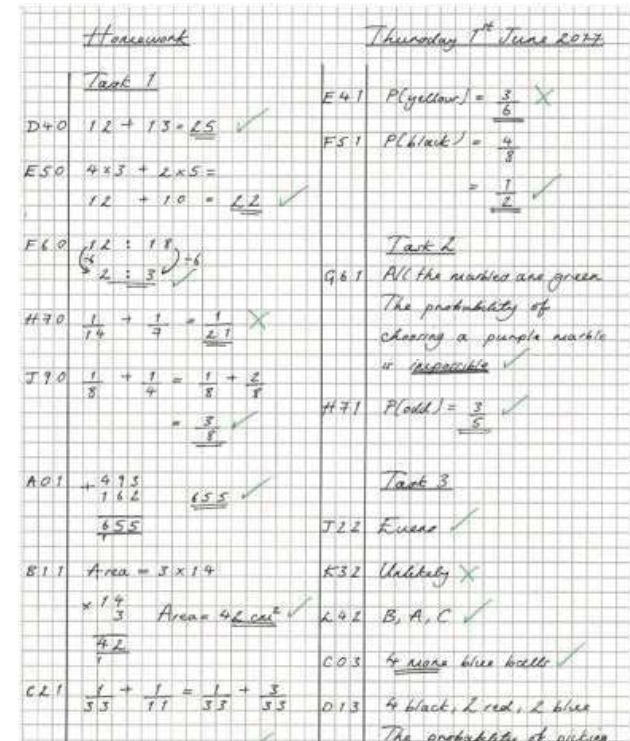 Homework
Thursday 1st June 2017
Task 1
D40 12 + 13 = 25
E50 4 x 3 + 2 x 5 =
12 + 10 = 22
F60 12 : 18
÷6 ÷6
2 : 3
H70 1/14 + 1/7 = 1/21
J90 1/8 + 1/4 = 1/8 + 2/8
= 3/8
A01 + 493
162 655
655
1
B11 Area = 3 x 14
x 14
3 Area = 42 cm²
42
1
C21 1/33 + 1/11 = 1/33 + 3/33
E41 P(yellow) = 3/6
F51 P(black) = 4/8
= 1/2
Task 2
G61 All the marbles are green
The probability of
choosing a purple marble
is impossible
H71 P(odd) = 3/5
Task 3
J22 Evens
K32 Unlikely
L42 B, A, C
C03 4 more blue balls
D13 4 black, 2 red, 2 blue
The probability of picking